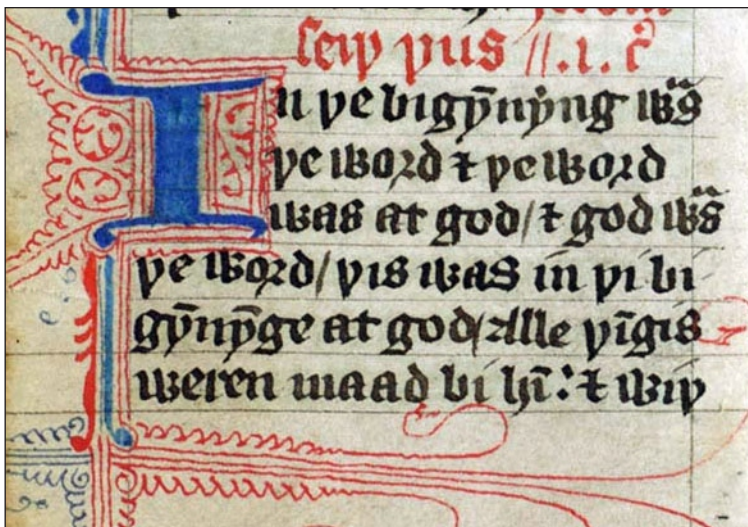 seiþ þus //.i. c̄
In þe bigȳnẏng wͣs
þe word ⁊ þe word
was at god/ ⁊ god wͣs
þe word/ þis was in þi bi
gȳnȳge at god/ Alle þīgis
weren maad bi hī: ⁊ wiþ